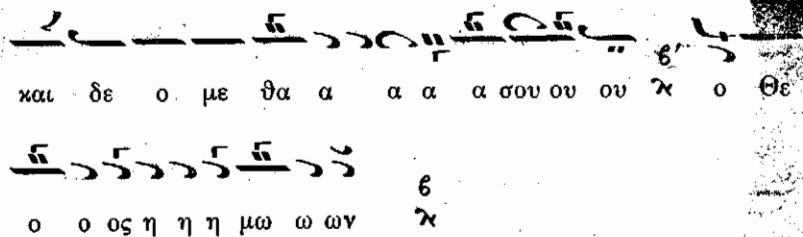 και δε ο με θα α α α α σου ου ου ο Θε
ο ο ος η η η μω ω ων